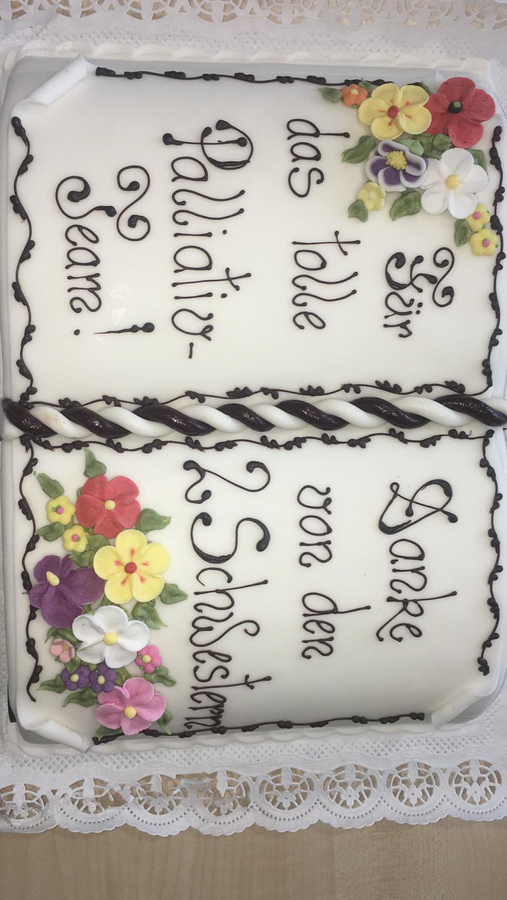 Für
das tolle
Palliativ-
Team!
Danke
von den
2 Schwestern